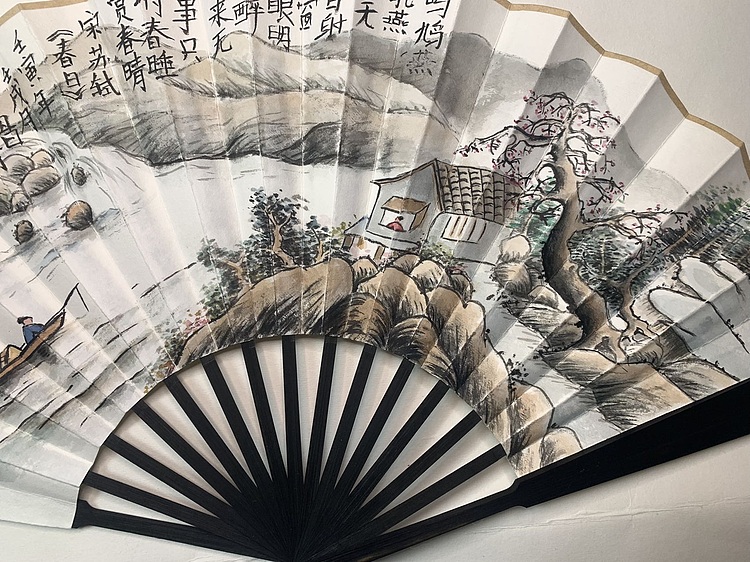 鸣鸠燕
乳燕
无
日射
窗
眼明
醉
来无
事只
将春睡
赏春晴
宋苏轼
《春日》
壬寅年